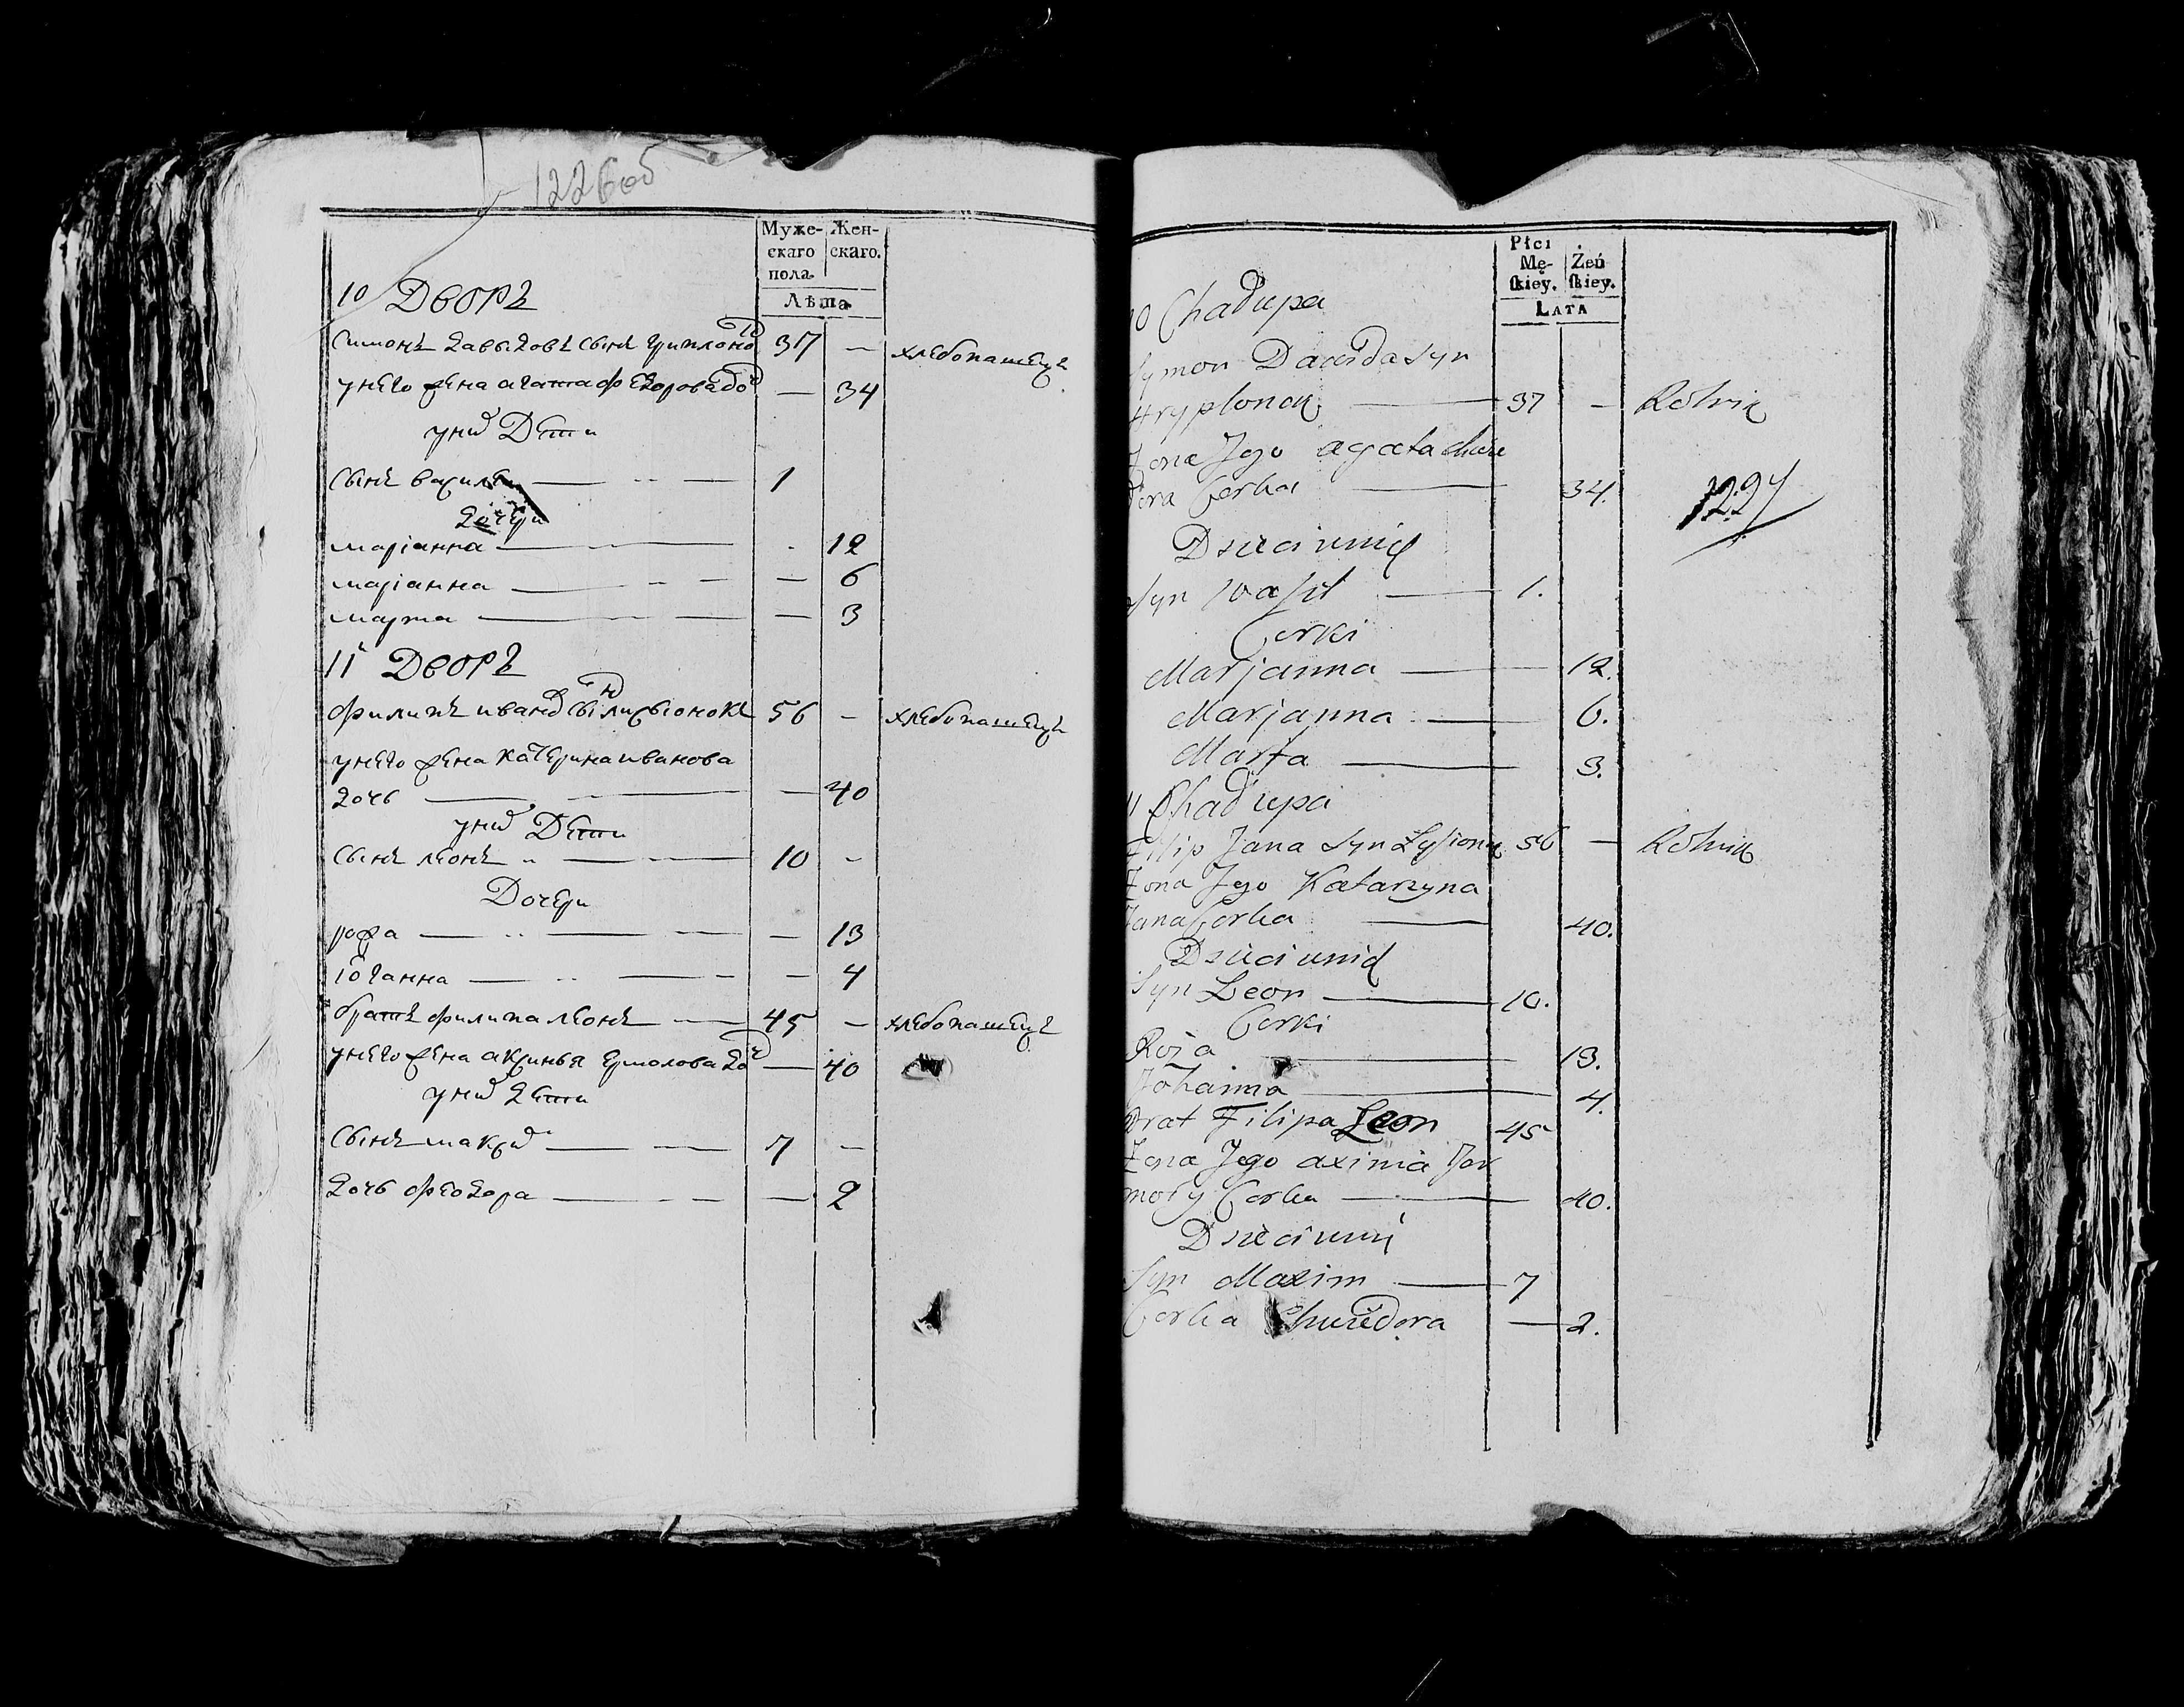 1226об
Муже-
скаго
пола.
Жен-
скаго.
Лѣта
10 Дворъ
Симонъ Давыдовъ сынъ Гриплоно 37 — хлебопашецъ
унего жена агата Федорова доч — 34
уних Дети
Сынъ васили — 1
Дочери
маріанна — 12
маріанна — — 6
марта — — 3
11 Дворъ
Филипъ иванов Сын лисионокъ 56 — хлебопашецъ
унего жена катерина иванова
дочь — — 40
уних Дети
Сынъ леонъ — 10 -
Дочери
рожа — — 13
іоганна — — 4
братъ филипа леонъ — 45 — хлебопашецъ
унего жена аксинья Ермолова доч — 40
уних дети
Сынъ максим — 7 —
дочь феодора — — 2
Płci
Mę-
skiey.
Żeń
skiey.
LATA
10 Chałupa
Symon Dawida Syn
Hryplonok — 37 — Rolnik
Żona Jego agata chwe
dora Corka — 34.
1227
Dzieci unich
Syn Wasil — 1.
Corki
Marjanna — 12.
Marjanna — 6.
Marta — 3.
11 Chałupa
Filip Jana Syn Łysionok 56 — Rolnik
Żona Jego Katarzyna
Jana Corka — 40.
Dzieci unich
Syn Leon — 10.
Corki
Roża — 13.
Johanna — 4.
Brat Filipa Leon 45
Żona Jego axinia Jar
moły Corka — 40.
Dzieci unich
Syn Maxim — 7
Corka Chwiedora — 2.